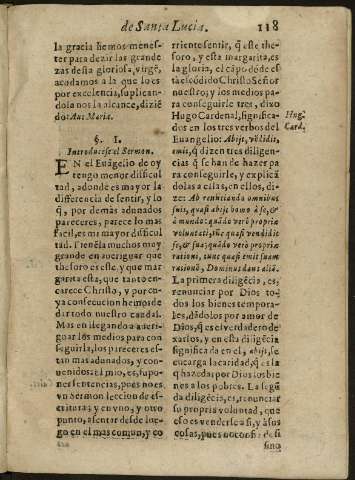 de Santa Lucia. 118
la gracia hemos menes-
ter para dezir las grande
zas desta gloriosa, virgē,
acodamos a la que lo es
por excelencia, suplican-
dola nos la alcance, dizié
do: Aue Maria.
§. I.
Introducese el Sermon.
EN el Euāgelio de oy
tengo menor dificul
tad, adonde es mayor la
differencia de sentir, y lo
q̄, por demàs adunados
pareceres, parece lo mas
facil, es mi mayor dificul
tad. Tienēla muchos muy
grande en aueriguar que
thesoro es este, y que mar
garita esta, que tanto en-
carece Christo, y por cu-
ya consecucion hemos de
dar todo nuestro caudal.
Mas en llegando a aueri-
guar los medios para con
seguirla, los pareceres es-
tan mas adunados, y con-
uenidos: el mio, es, supo-
ner sentencias, pues no es
vn Sermon leccion de es-
crituras; y en vno, y otro
punto, assentar desde lue-
go en el mas comun, y co
rriente sentir, q̄ este the-
soro, y esta margarita, es
la gloria, el cāpo dóde es
tà escódido Christo Señor
nuestro; y los medios pa-
ra conseguirle tres, dixo
Hugo Cardenal, significa-
dos en los tres verbos del
Euangelio: Abijt, vēdidit,
emit, q̄ dizen tres diligen
cias q̄ se han de hazer pa
ra conseguirle, y explicā
dolas a ellas, en ellos, di-
ze: Ab renuntianda omnibus
suis, quasi abijt homo à se, &
à mundo: quādo verò propriæ
voluntati, tūc quasi vendidit
se, & sua; quādo verò propriæ
rationi, tunc quasi emit suam
rationē, Dominus dans aliā.
La primera diligēcia, es,
renunciar por Dios to-
dos los bienes tempora-
les, dādolos por amor de
Dios, q̄ es el verdadero de
xarlos, y en esta diligēcia
significada en el, abijt, se
encarga la caridad, q̄ es la
q̄ haze dar por Dios los bie
nes a los pobres. La segū
da diligēcia, es, renunciar
su propria voluntad, que
esso es venderse a si, y à sus
cosas, pues no confia de si
sino
Hug.
Card.